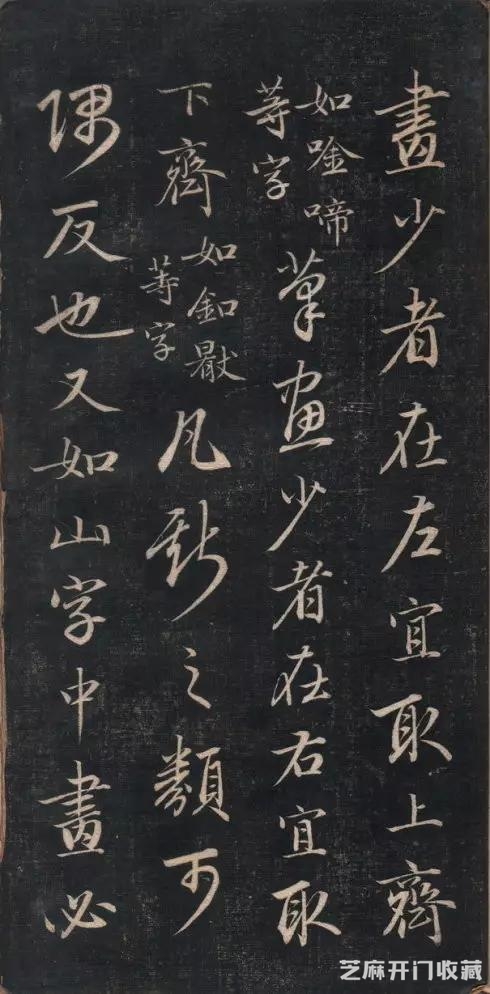 畫少者在左宜取上齊
如唫啼
等字
筆画少者在右宜取
下齊
如釦
等字
凡斯之類可
隅反也又如山字中畫必
芝麻开门收藏